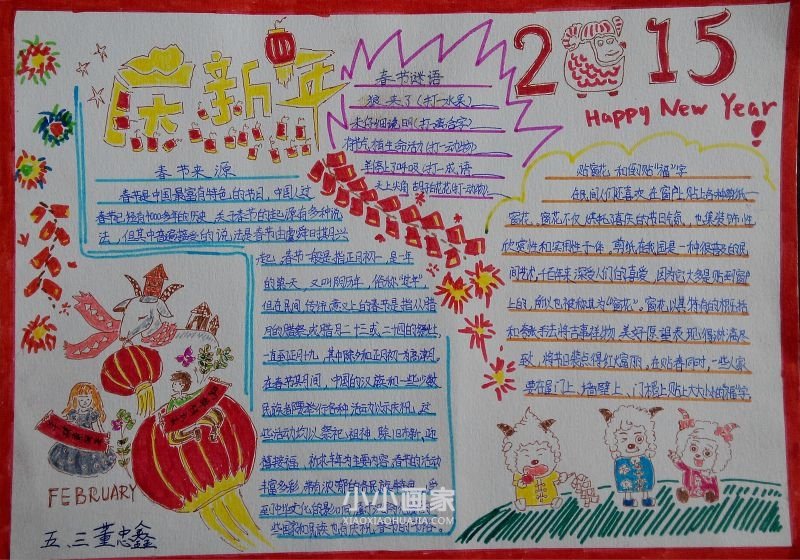 庆新年
2015
Happy New Year!
春节谜语
狼来了(打一水果)
春节来源
春节是中国最富有特色的节日,中国人过
春节已经有4000多年的历史,关于春节的起源有多种说
法,但其中普遍接受的说法是春节由虞舜日其月兴
起,春节一般是指正月初一,是一年
的第一天,又叫阴历年,俗称"过年"
但在民间,传统意义上的春节是指从腊
月的腊祭或腊月二十三或二十四的祭灶,
一直至正月十九,其中除夕和正月初一为高潮。
在春节期间,中国的汉族和一些少数
民族都要举行各种活动以示庆祝,这
些活动均以祭祀祖神、除旧布新、迎
禧接福、祈求丰年为主要内容,春节的活动
丰富多彩,带有浓郁的各民族特色。受
贴窗花和倒贴"福"字
在民间人们还喜欢在窗户上贴上各种剪纸——
窗花。窗花不仅烘托了喜庆的节日气氛,也集装饰性
欣赏性和实用性于一体。剪纸在我国是一种很普及的民
间艺术,千百年来深受人们的喜爱,因它大多是贴在窗户
上的,所以也被称其为"窗花"。窗花以其特有的概括
和夸张手法将吉事祥物、美好愿望表现得淋漓尽
致,将节日装点得红火富丽。在贴春同时,一些人家
要在屋门上、墙壁上、门楣上贴上大大小小的"福"字。
FEBRUARY
五、三董忠鑫
小小画家
XIAOXIAOHUAJIA.COM